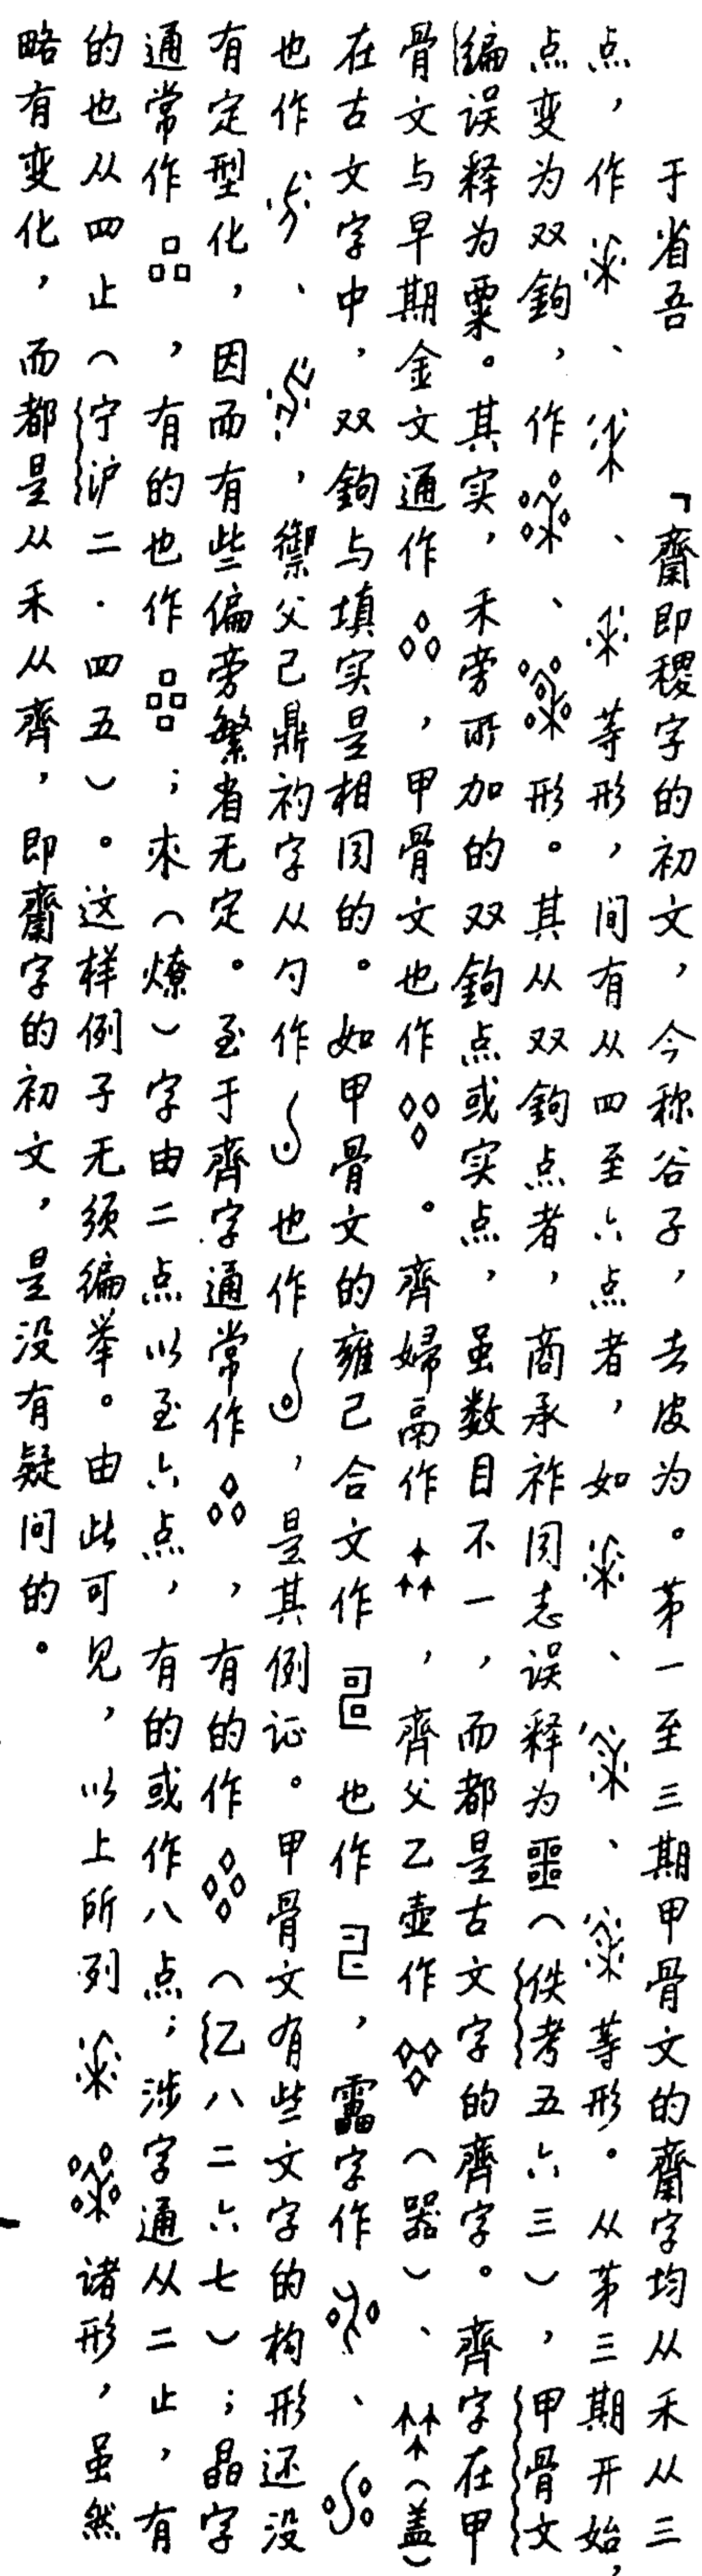 于省吾 「齋即稷字的初文，今称谷子，去皮为。第一至三期甲骨文的齋字均从禾从三
点，作、、等形，间有从四至六点者，如、、等形。从第三期开始，
点变为双鉤，作、形。其从双鉤点者，商承祚同志误释为噩（佚考五六三），甲骨文
编误释为粟。其实，禾旁所加的双鉤点或实点，虽数目不一，而都是古文字的齊字。齊字在甲
骨文与早期金文通作，甲骨文也作。齊婦鬲作，齊父乙壶作（器）、（盖）
在古文字中，双鉤与填实是相同的。如甲骨文的雍己合文作也作，靁字作、
也作、，禦父己鼎礿字从勺作也作，是其例证。甲骨文有些文字的构形还没
有定型化，因而有些偏旁繁省无定。至于齊字通常作，有的作（乙八二六七）；晶字
通常作，有的也作；尞（燎）字由二点以至六点，有的或作八点；涉字通从二止，有
的也从四止（宁沪二·四五）。这样例子无须编举。由此可见，以上所列诸形，虽然
略有变化，而都是从禾从齊，即齋字的初文，是没有疑问的。